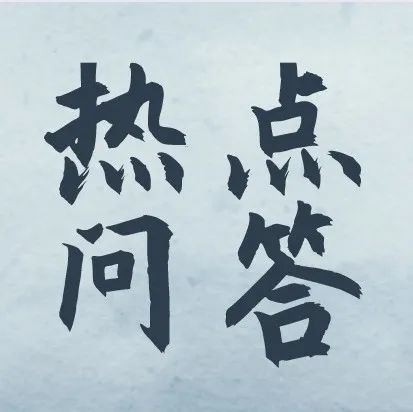 热点
问答